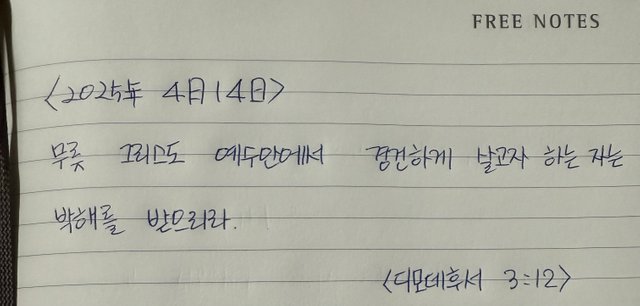 FREE NOTES
<2025年 4日14日>
무릇 그리스도 예수안에서 경건하게 살고자 하는 자는
박해를 받으리라.
<디모데후서 3:12>